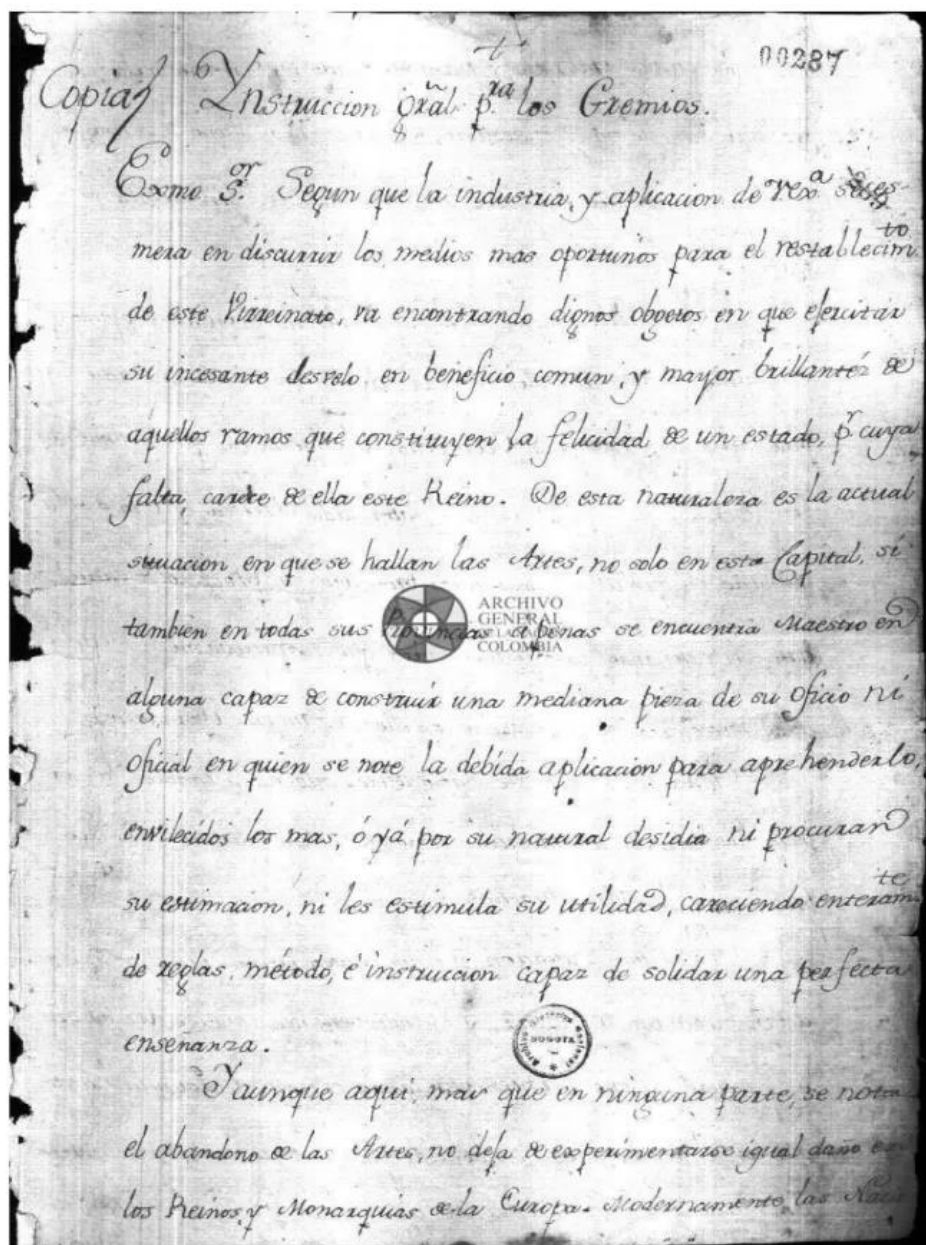 00287
Copia) Ynstruccion gräl. p.ra los Gremios.
Exmo S.or Segun que la industria, y aplicacion de Vex.a se es-
mera en discurrir los medios mas oportunos para el restablecim.to
de este Virreinato, va encontrando dignos obgetos en que ejercitar
su incesante desvelo en beneficio comun, y mayor brillantéz de
aquellos ramos que constituyen la felicidad de un estado, p.r cuya
falta, carece de ella este Reino. De esta naturaleza es la actual
situacion en que se hallan las Artes, no solo en esta Capital, sí
tambien en todas sus Provincias apenas se encuentra Maestro en
alguna capaz de construir una mediana pieza de su oficio ni
oficial en quien se note la debida aplicacion para aprehenderlo,
envilecidos los mas, ó yá por su natural desidia ni procuran
su estimacion, ni les estimula su utilidad, careciendo enteram.te
de reglas, método, é instruccion capaz de solidar una perfecta
ensenanza.
Y aunque aqui, mas que en ninguna parte, se nota
el abandono de las Artes, no deja de experimentarse igual daño en
los Reinos, y Monarquias de la Europa. Modernamente las Nacio
ARCHIVO
GENERAL
DE LA NACIÓN
COLOMBIA
BOGOTA